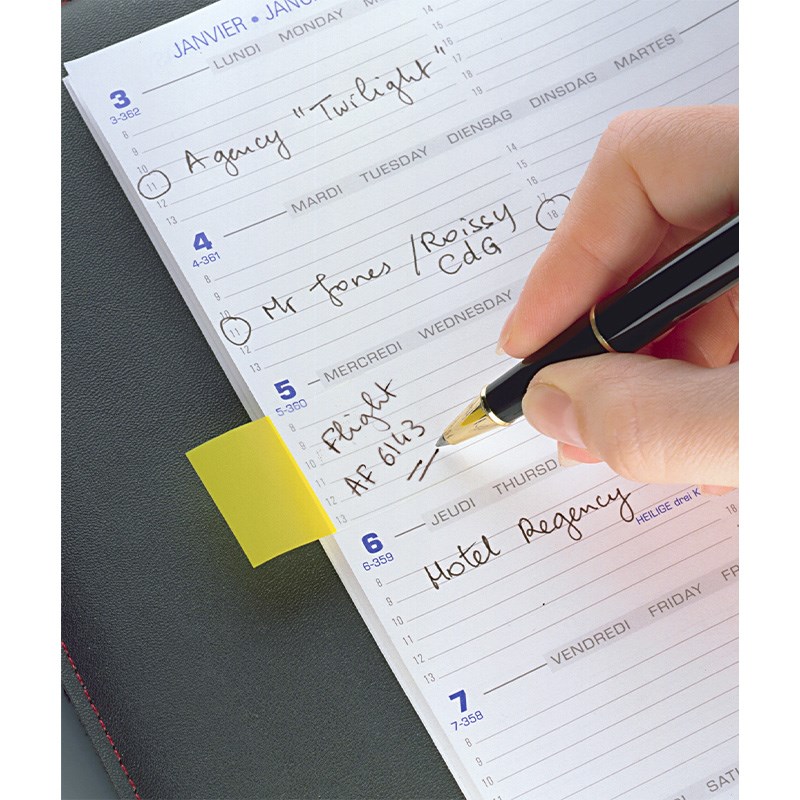 JANVIER • JANU
LUNDI MONDAY M
3
3-362
14
15
16
17
18
19
8
9
10
11
12
13
Agency "Twilight"
MARDI TUESDAY DIENSAG DINSDAG MARTES
4
4-361
14
15
16
17
18
8
9
10
11
12
13
Mr Jones / Roissy
CdG
MERCREDI WEDNESDAY
5
5-360
8
9
10
11
12
13
Flight
AF 6143
JEUDI THURSD
6
6-359
HEILIGE drei K
18
19
8
9
10
11
12
13
Hotel Regency
VENDREDI FRIDAY FR
7
7-358
8
9
10
SAT